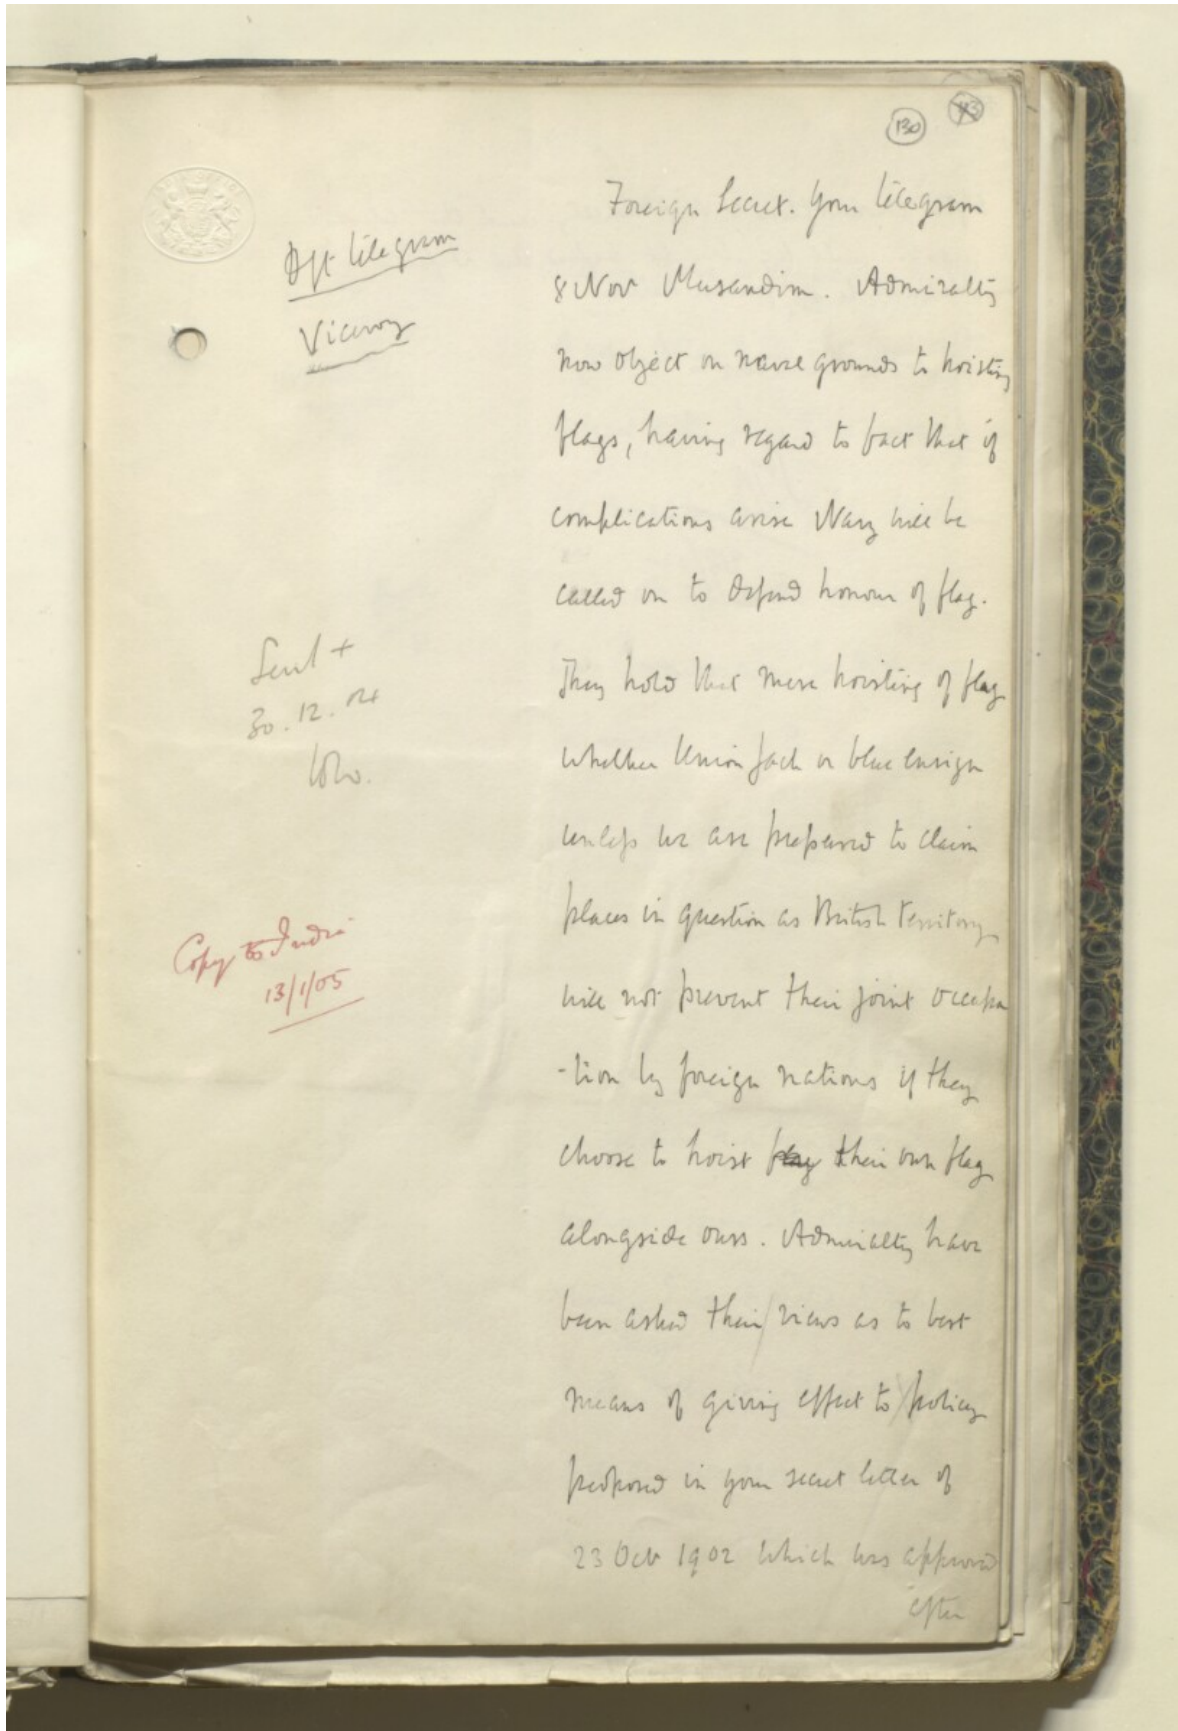 130
Foreign Secret. Your telegram
Dft telegram
Viceroy
8 Nov Musandim. Admiralty
now object on naval grounds to hoisting
flags, having regard to fact that if
complications arise Navy will be
called on to defend honour of flag.
Sent
30.12.04
They hold that mere hoisting of flag
whether Union Jack or blue ensign
unless we are prepared to claim
places in question as British territory
Copy to India
13/1/05
will not prevent their joint occupa
-tion by foreign nations if they
choose to hoist flag their own flag
alongside ours. Admiralty have
been asked their views as to best
means of giving effect to policy
proposed in your secret letter of
23 Oct 1902 which was approved
after